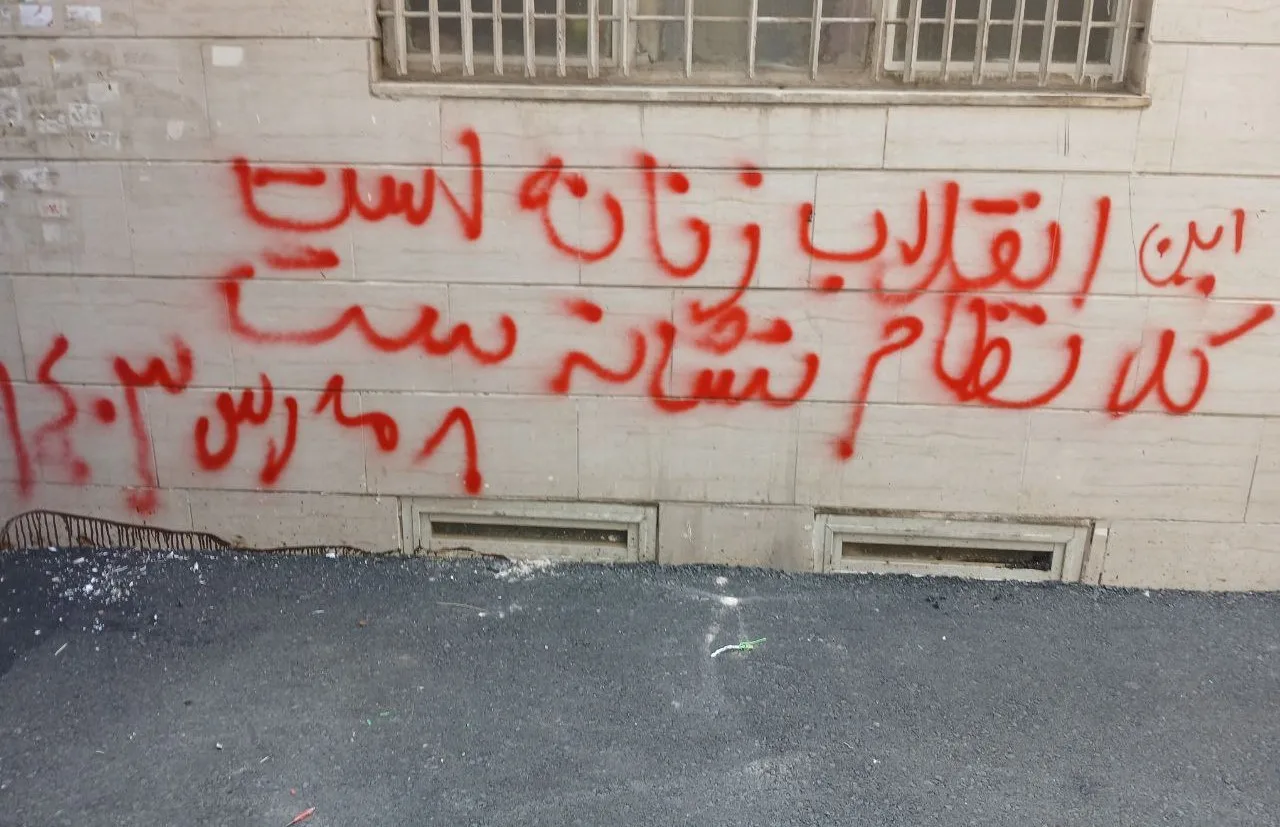 این انقلاب زنانه است
کل نظام نشانه ست
۸ مارس ۱۴۰۳